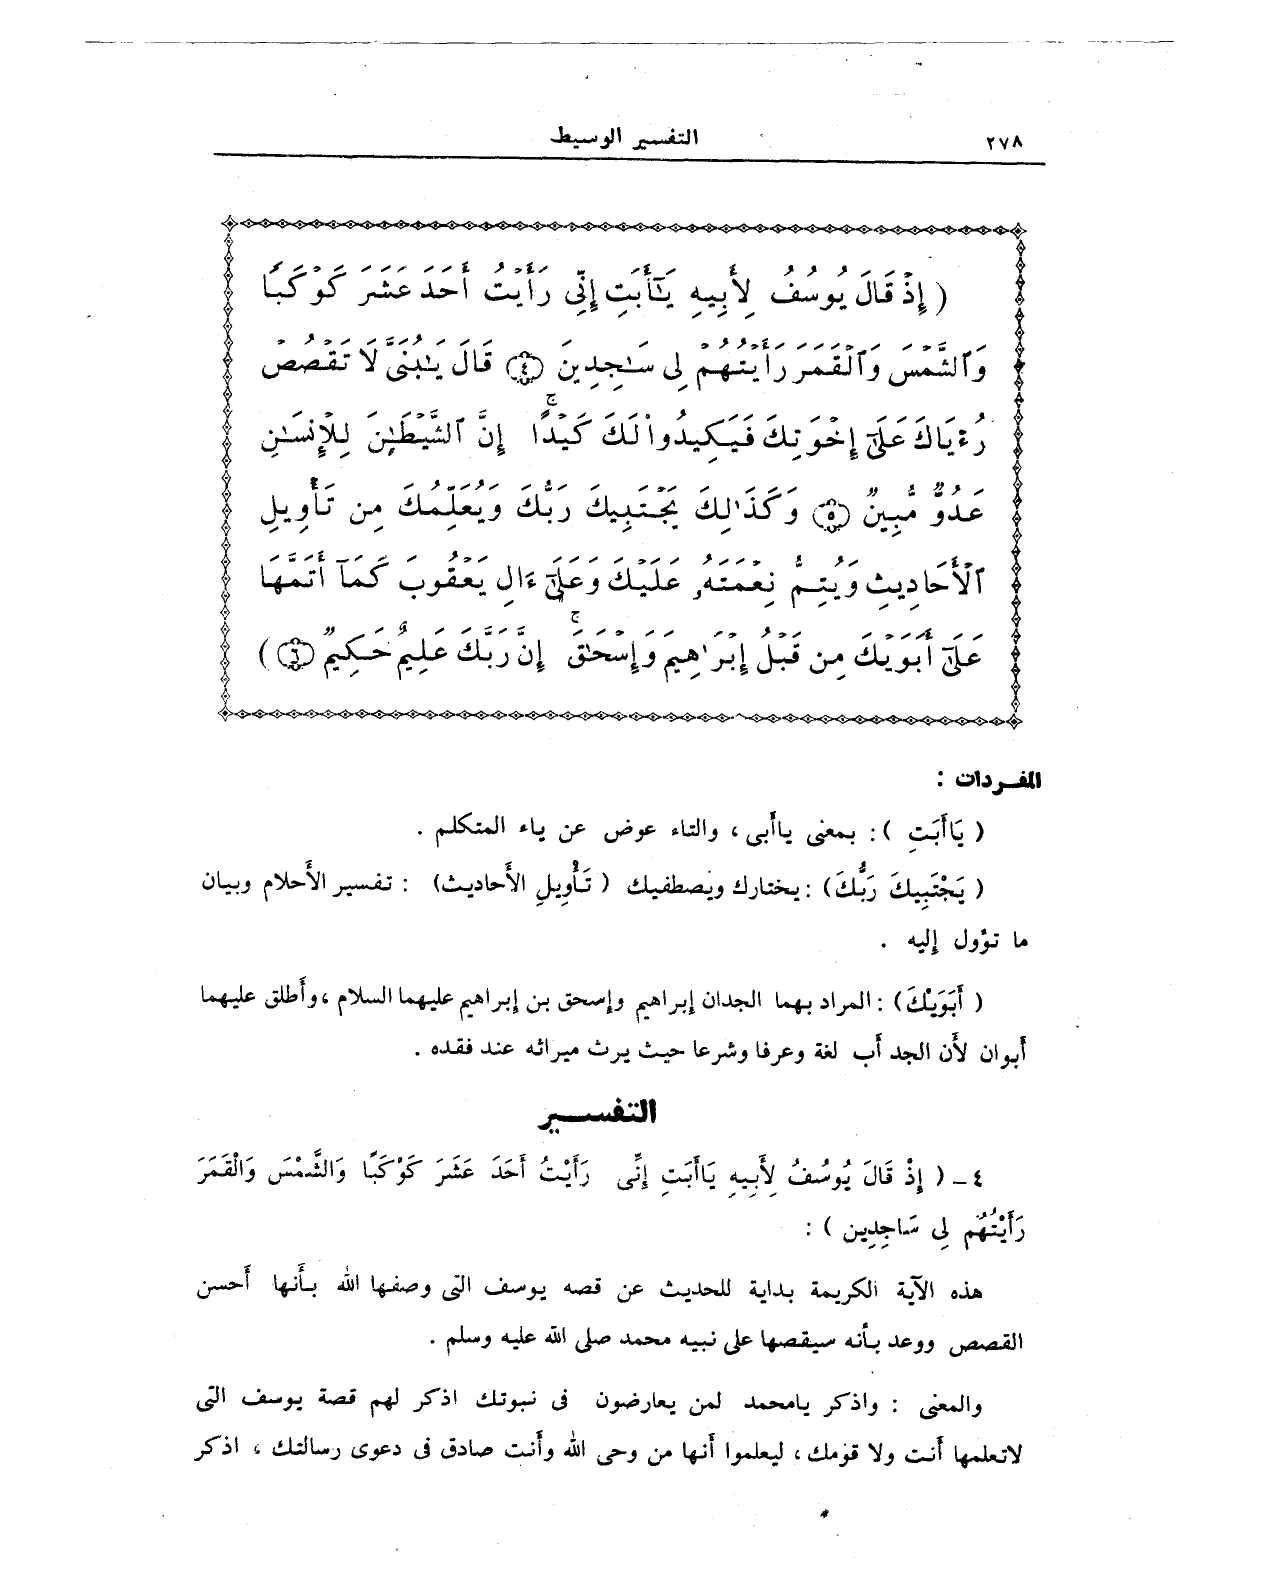 ٢٧٨
التفسير الوسيط
( إِذْ قَالَ يُوسُفُ لِأَبِيهِ يَٰٓأَبَتِ إِنِّى رَأَيْتُ أَحَدَ عَشَرَ كَوْكَبًا
وَٱلشَّمْسَ وَٱلْقَمَرَ رَأَيْتُهُمْ لِى سَٰجِدِينَ ﴿٤﴾ قَالَ يَٰبُنَىَّ لَا تَقْصُصْ
رُءْيَاكَ عَلَىٰٓ إِخْوَتِكَ فَيَكِيدُوا۟ لَكَ كَيْدًا ۖ إِنَّ ٱلشَّيْطَٰنَ لِلْإِنسَٰنِ
عَدُوٌّ مُّبِينٌ ﴿٥﴾ وَكَذَٰلِكَ يَجْتَبِيكَ رَبُّكَ وَيُعَلِّمُكَ مِن تَأْوِيلِ
ٱلْأَحَادِيثِ وَيُتِمُّ نِعْمَتَهُۥ عَلَيْكَ وَعَلَىٰٓ ءَالِ يَعْقُوبَ كَمَآ أَتَمَّهَا
عَلَىٰٓ أَبَوَيْكَ مِن قَبْلُ إِبْرَٰهِيمَ وَإِسْحَٰقَ ۚ إِنَّ رَبَّكَ عَلِيمٌ حَكِيمٌ ﴿٦﴾ )
المفـردات :
( يَاأَبَتِ ) : بمعنى ياأبى ، والتاء عوض عن ياء المتكلم .
( يَجْتَبِيكَ رَبُّكَ ) : يختارك ويصطفيك ( تَأْوِيلِ الأَحاديث ) : تفسير الأحلام وبيان
ما تؤول إليه .
( أَبَوَيْكَ ) : المراد بهما الجدان إبراهيم وإسحق بن إبراهيم عليهما السلام ، وأطلق عليهما
أبوان لأن الجد أب لغة وعرفا وشرعا حيث يرث ميراثه عند فقده .
التفســـير
٤ - ( إِذْ قَالَ يُوسُفُ لِأَبِيهِ يَاأَبَتِ إِنِّى رَأَيْتُ أَحَدَ عَشَرَ كَوْكَبًا وَالشَّمْسَ وَالْقَمَرَ
رَأَيْتُهُم لِى سَاجِدِين ) :
هذه الآية الكريمة بداية للحديث عن قصه يوسف التى وصفها الله بأنها أحسن
القصص ووعد بأنه سيقصها على نبيه محمد صلى الله عليه وسلم .
والمعنى : واذكر يامحمد لمن يعارضون فى نبوتك اذكر لهم قصة يوسف التى
لاتعلمها أنت ولا قومك ، ليعلموا أنها من وحى الله وأنت صادق فى دعوى رسالتك ، اذكر